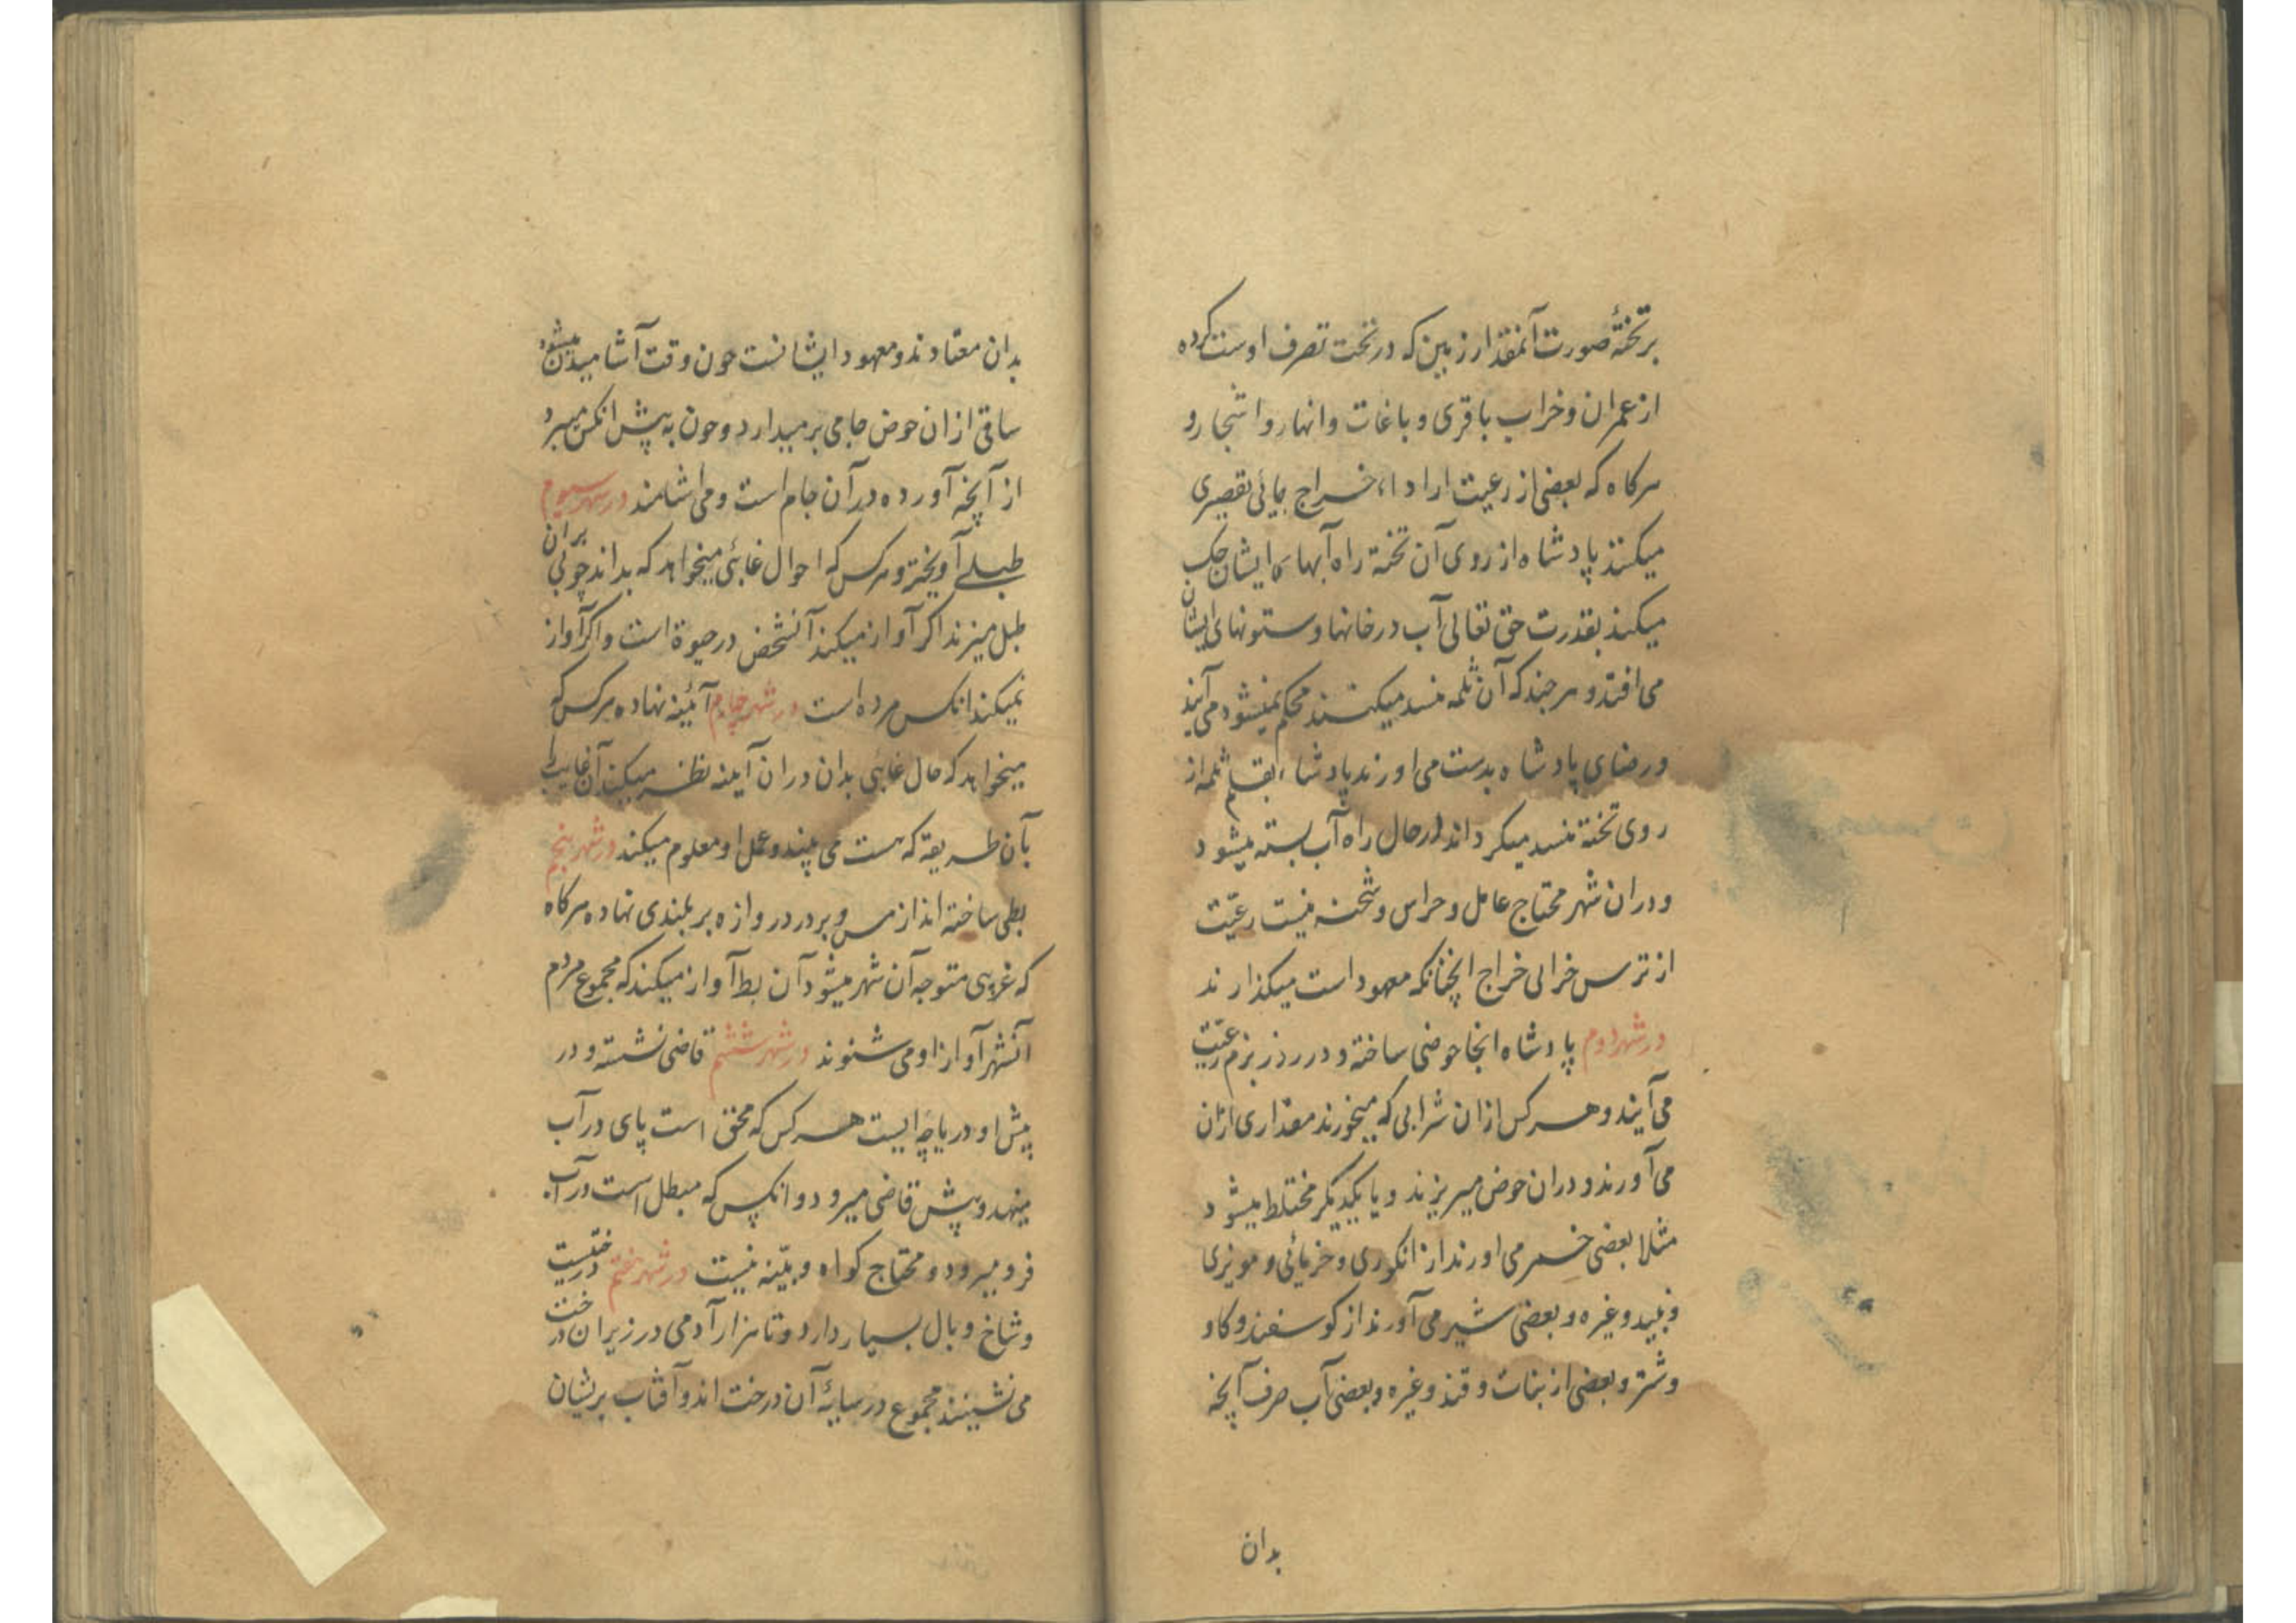 بر تختهٔ صورت آنمقدار زمین که در تحت تصرف اوست کرده
از عمران و خراب با قری و باغات و انهار و اشجار و
هرکاه که بعضی از رعیت ارا داء خراج بجائی تقصیری
میکنند پادشاه از روی آن تخته راه آبها که ایشان
میکند بقدرت حق تعالی آب در خانها و ستونهای ایشان
می افتد و هر چند که آن ثلمه منسد میکنند محکم نمیشود می آیند
و رضای پادشاه بدست می اورند پادشاه بقلم ثلمه از
روی تخته منسد میکرداند در حال راه آب بسته میشود
و دران شهر محتاج عامل و حراس و شحنه نیست رعیّت
از ترس خرابی خراج انچنانکه معهود است میکذارند
در شهر دوم پادشاه انجا حوضی ساخته و در روز بزم رعیّت
می آیند و هر کس ازان شرابی که میخورند مقداری ازان
می آورند و دران حوض میریزند و با یکدیکر مختلط میشود
مثلا بعضی خمر می اورند از انکوری و خرمائی و مویزی
و نبید و غیره و بعضی شیر می آورند از کوسفند و کاو
و شتر و بعضی از نبات و قند و غیره و بعضی آب صرف آنچه
بدان
بدان معتادند و معهود ایشانست چون وقت آشامیدن میشود
ساقی ازان حوض جامی بر میدارد و چون به پیش انکس میبرد
از آنچه آورده در آن جام است و می اشامند در شهر سیوم
طبلی آویخته و هر کس که احوال غائبی میخواهد که بداند چوبی بران
طبل میزند اکر آواز میکند آنشخص در حیوة است و اکر آواز
نمیکند انکس مرده است در شهر چهارم آئینه نهاده هر کس که
میخواهد که حال غائبی بداند دران آینه نظر میکند آن غایب را
بآن طریقه که هست می بیند و عمل او معلوم میکند در شهر پنجم
بطی ساخته اند از مس و بر در دروازه بر بلندی نهاده هرکاه
که غریبی متوجه آن شهر میشود آن بط آواز میکند که مجموع مردم
آنشهر آواز او می شنوند در شهر ششم قاضی نشسته و در
پیش او دریاچه ایست هر کس که محق است پای در آب
مینهد و پیش قاضی میرود و انکس که مبطل است در آب
فرو میرود و محتاج کواه و بیّنه نیست در شهر هفتم درختیست
و شاخ و بال بسیار دارد و تا هزار آدمی در زیر ان درخت
می نشینند مجموع در سایهٔ آن درخت اند و آفتاب بریشان